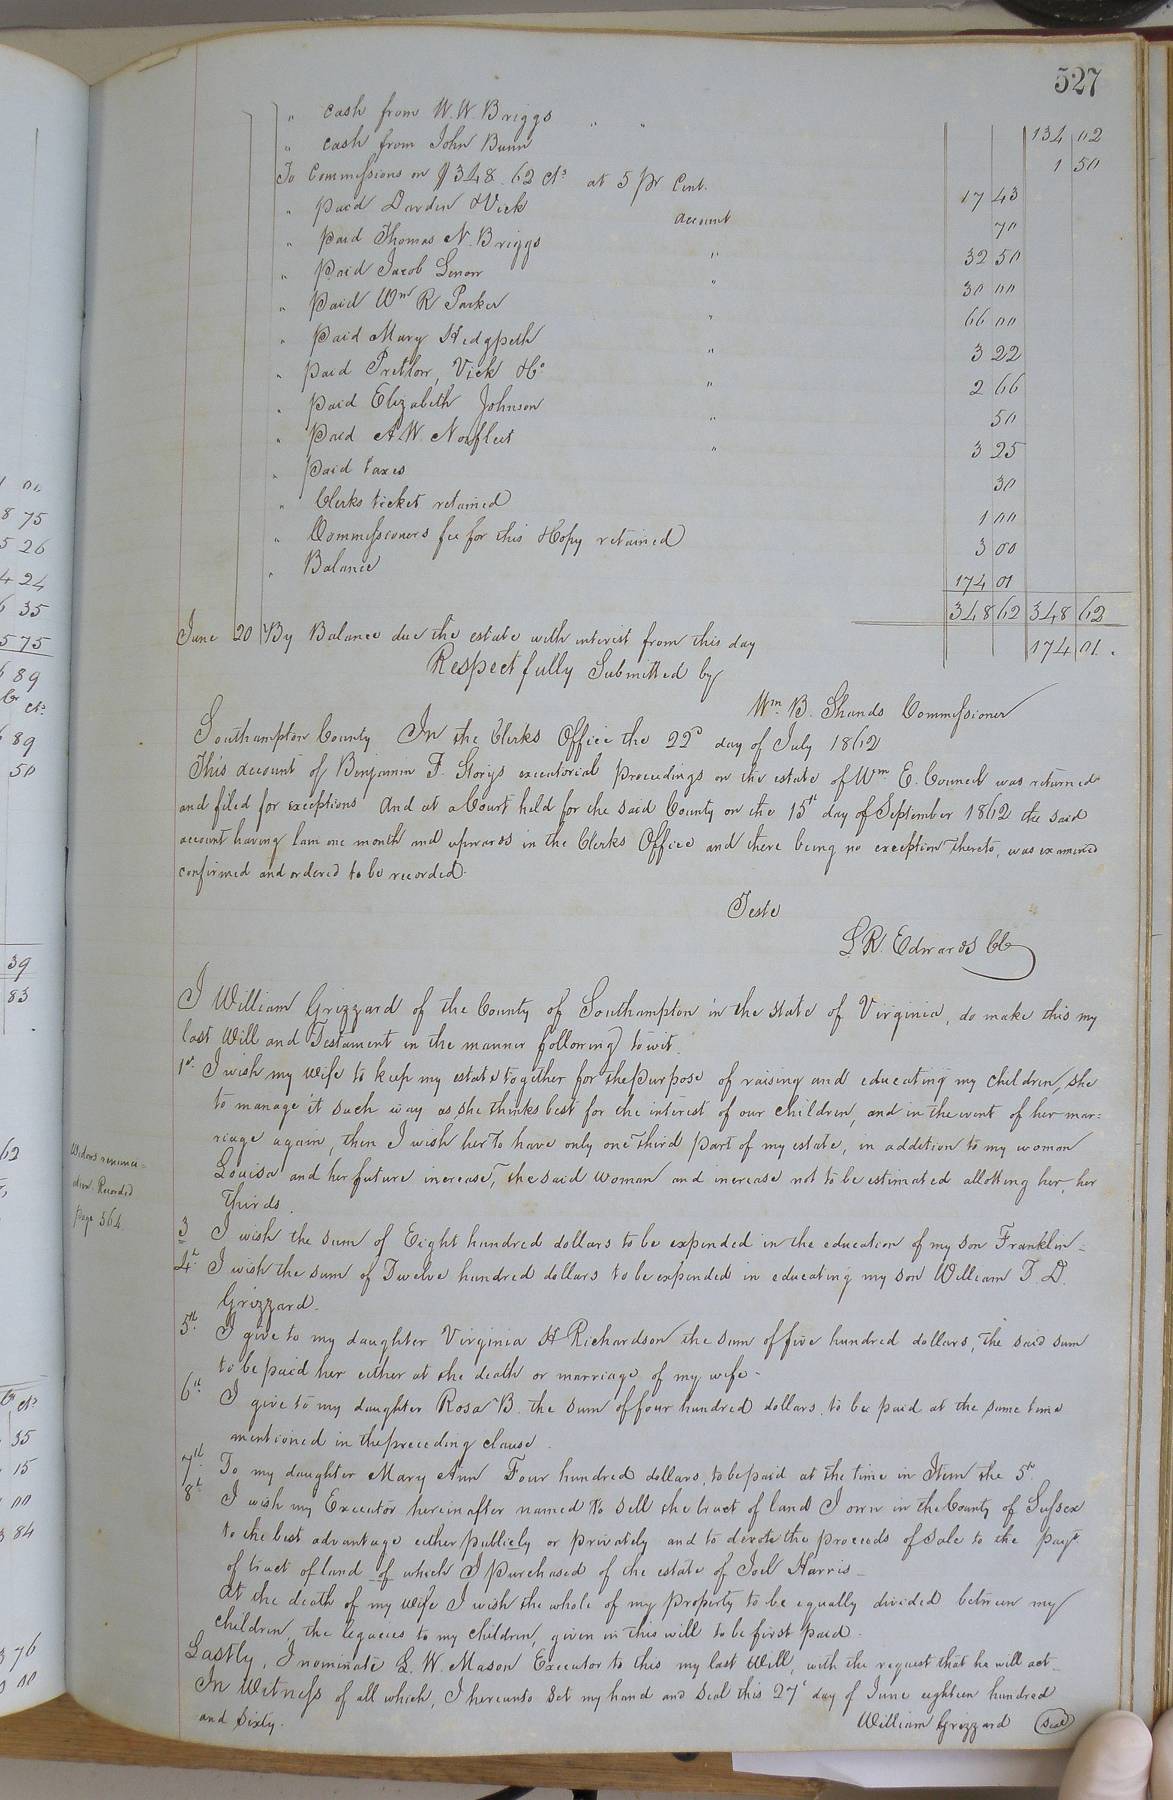 527
" cash from W. W. Briggs " " 134 02
" cash from John Bunn 1 50
To Commissions on $348.62 cts at 5 pr Cent. 17 43
" paid Darden & Vick account 70
" paid Thomas N. Briggs " 32 50
" paid Jacob " 30 00
" paid Wm R Parker " 66 00
" paid Mary Hedgpeth " 3 22
" paid Pretlow, Vick & Co " 2 66
" paid Elizabeth Johnson " 50
" paid A. W. Norfleet " 3 25
" paid taxes 30
" Clerks ticket retained 1 00
" Commissioners fee for this & Copy retained 3 00
" Balance 174 01
348 62 348 62
June 20 By Balance due the estate with interest from this day 174 01.
Respectfully Submitted by
Wm. B. Shands Commissioner
Southampton County In the Clerks Office the 22d day of July 1862
This account of Benjamin F. Storys executorial proceedings on the estate of Wm E. Council was returned
and filed for exceptions And at a Court held for the said County on the 15th day of September 1862 the said
account having lain one month and upwards in the Clerks Office and there being no exception thereto, was examined
confirmed and ordered to be recorded.
Teste
L. R. Edwards CC
I William Grizzard of the County of Southampton in the state of Virginia, do make this my
last Will and Testament in the manner following to wit.
1st I wish my wife to keep my estate together for the purpose of raising and educating my children, she
to manage it such way as she thinks best for the interest of our children, and in the event of her mar=
riage again, then I wish her to have only one third part of my estate, in addition to my woman
Louisa and her future increase, the said woman and increase not to be estimated allotting her, her
thirds.
Widows renunci=
ation Recorded
page 564.
3 I wish the sum of Eight hundred dollars to be expended in the education of my son Franklin -
4th I wish the sum of Twelve hundred dollars to be expended in educating my son William T. D.
Grizzard.
5th I give to my daughter Virginia H Richardson the sum of five hundred dollars, the said sum
to be paid her either at the death or marriage of my wife -
6th I give to my daughter Rosa B. the sum of four hundred dollars, to be paid at the same time
mentioned in the preceding clause.
7th To my daughter Mary Ann Four hundred dollars, to be paid at the time in Item the 5th.
8th I wish my Executor hereinafter named to sell the tract of land I own in the County of Sussex
to the best advantage either publicly or privately and to devote the proceeds of sale to the payt
of tract of land of which I purchased of the estate of Joel Harris -
At the death of my wife I wish the whole of my property to be equally divided between my
children, the legacies to my children, given in this will to be first paid.
Lastly, I nominate L. W. Mason Executor to this my last Will, with the request that he will act -
In Witness of all which, I hereunto set my hand and seal this 27th day of June eighteen hundred
and sixty.
William Grizzard (Seal)